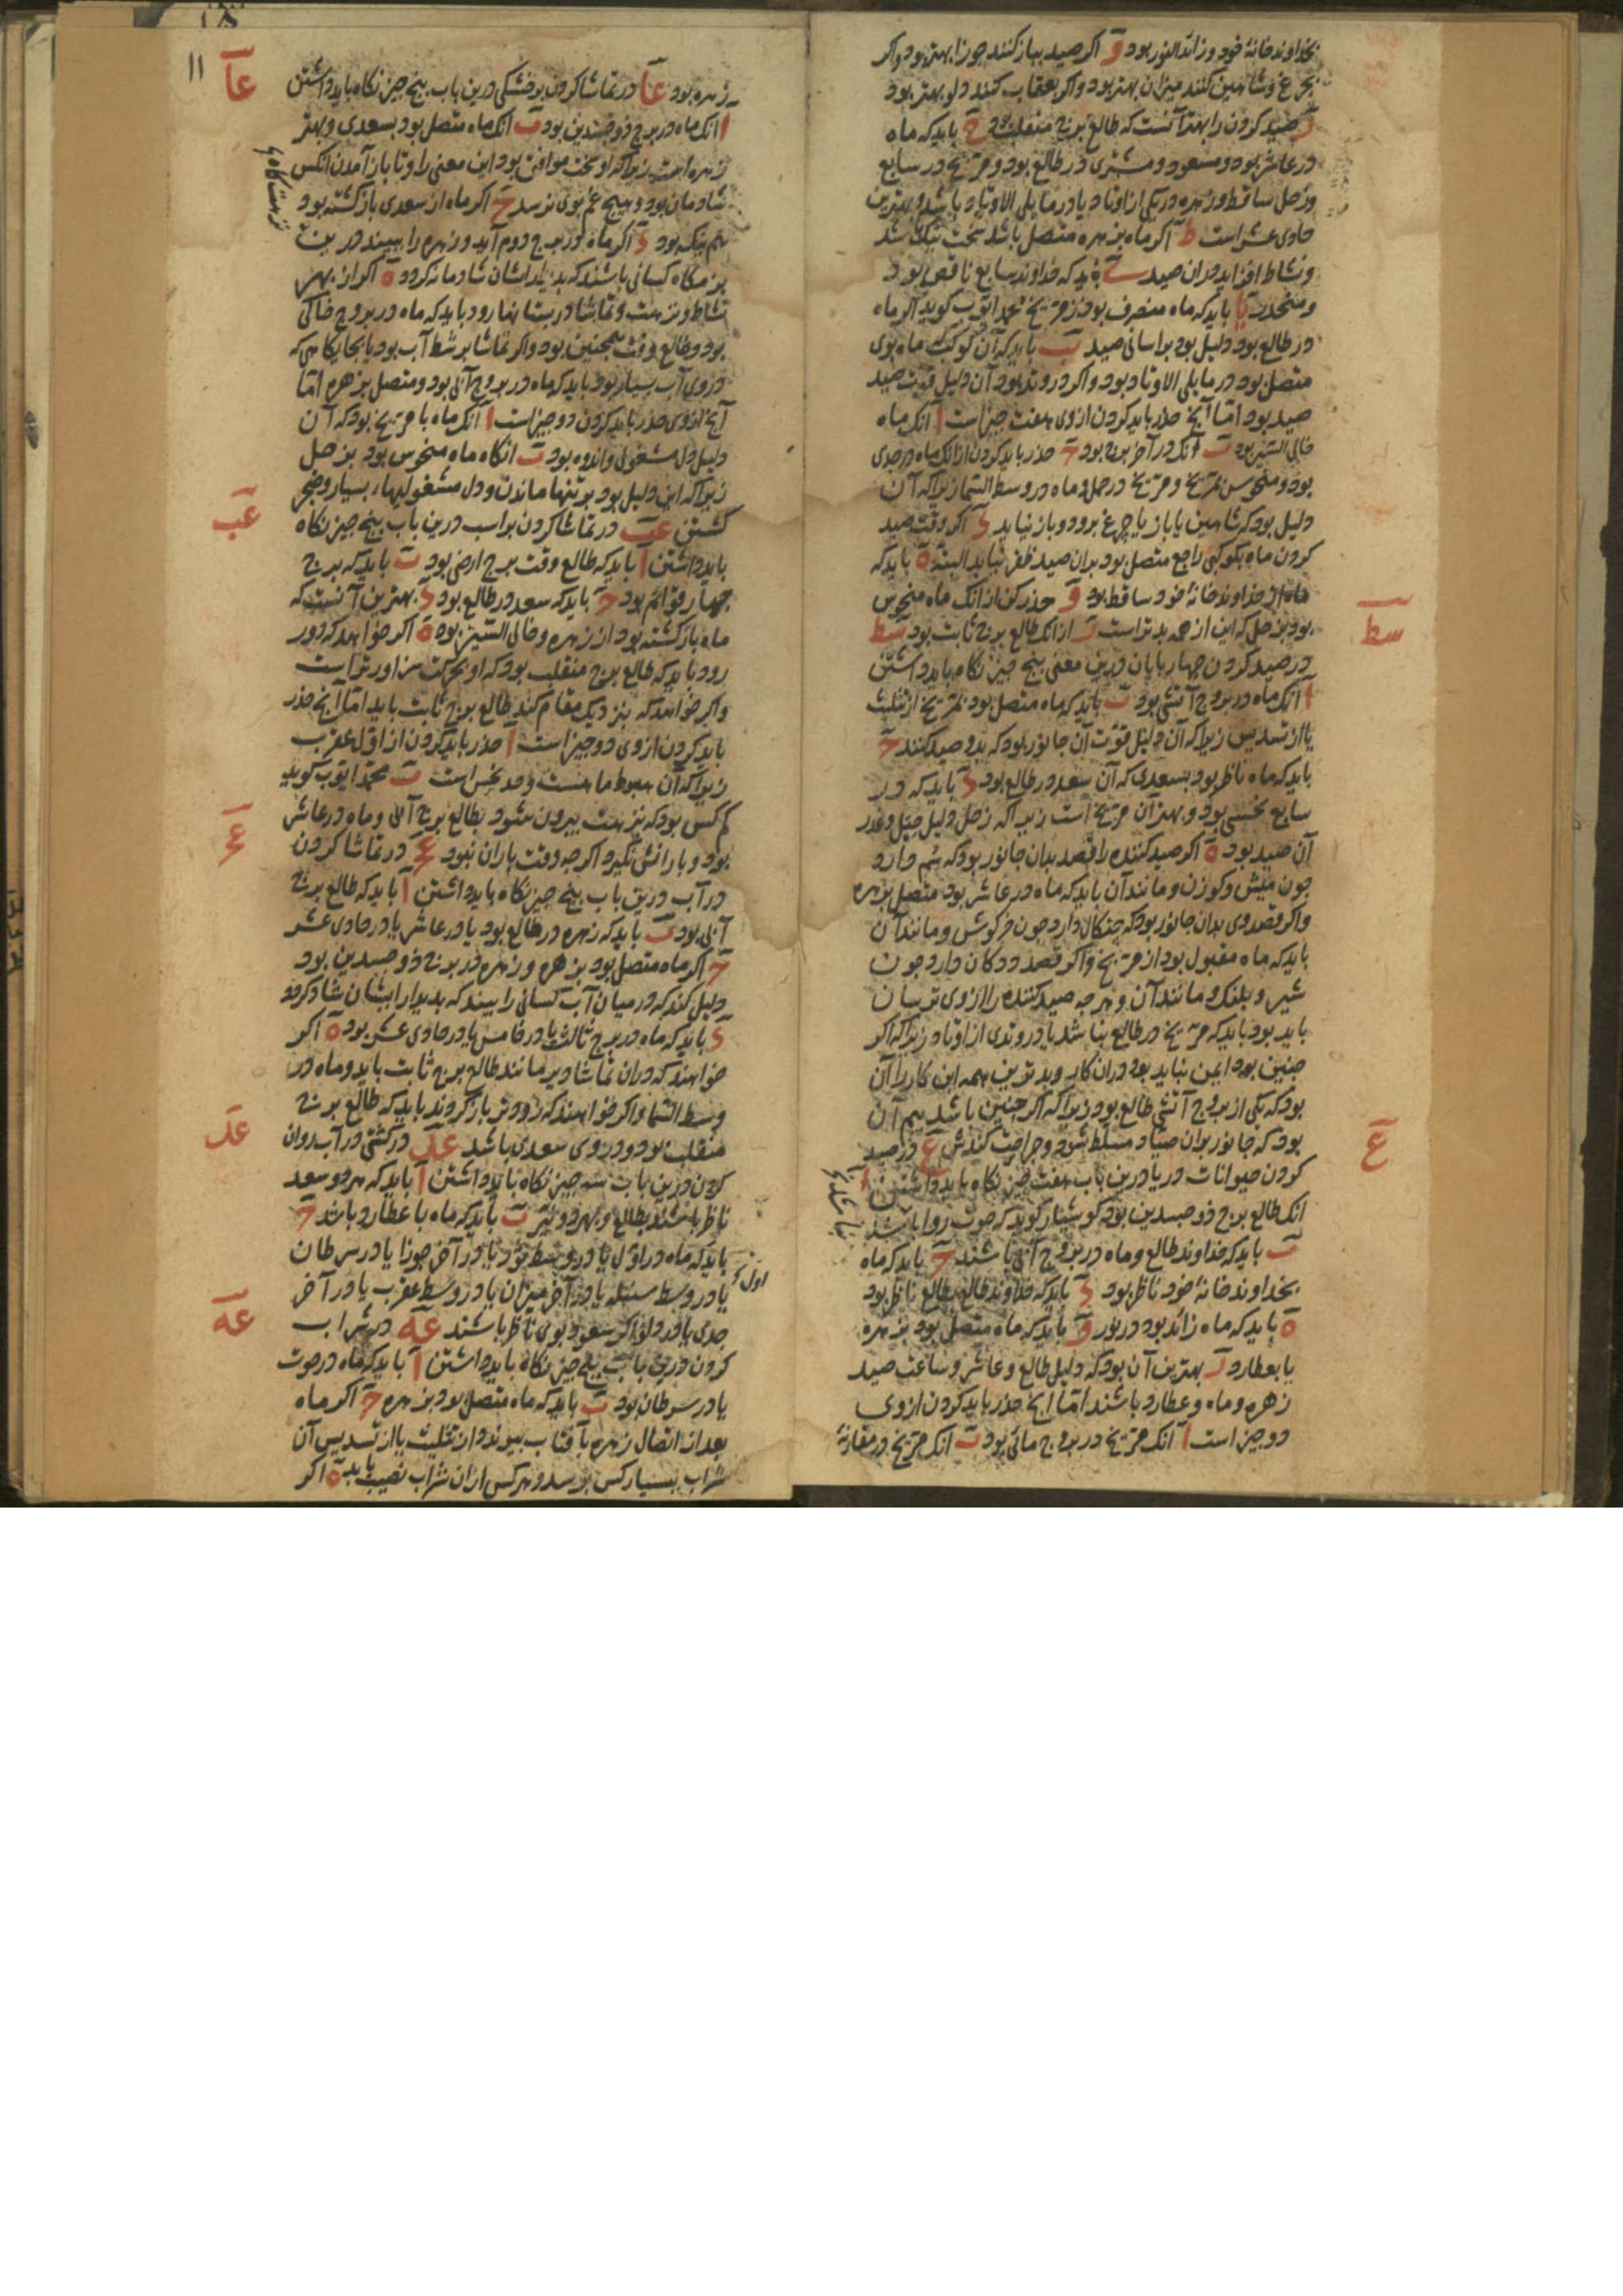 بخداوند خانهٔ خود و زائد النور بود و اگر صید بباز کنند جوزا بهتر بود واکر
بجرغ وشاهین کنند میزان بهتر بود واکر بعقاب کنند دلو بهتر بود
ز صید کردن را بهتر آنست که طالع برج منقلب بود ح باید که ماه
در عاشر بود و مسعود و مشتری در طالع بود و مریخ در سابع
وزحل ساقط وزهره در یکی از اوتاد یا در مایلی الاوتاد باشد و بهترین
حادی عشر است ط اکر ماه بزهره متصل باشد سخت نیک باشد
ونشاط افزاید دران صید ی باید که خداوند سابع ناقص بود
ومنحدر یا باید که ماه منصرف بود از مریخ محمد ایوب کوید اکر ماه
در طالع بود دلیل بود بر اسانی صید یب باید که آن کوکب که ماه بوی
متصل بود در مایلی الاوتاد بود واکر در وتد بود آن دلیل صید
صید بود اما آنچ حذر باید کردن ازوی هفت چیز است ا آنک ماه
خالی السیر بود ب آنک در آخر برج بود ح حذر باید کردن از آنک ماه در جدی
بود و منحوس بمریخ و مریخ در حمل و ماه در وسط السما زیرا که آن
دلیل بود که شاهین یا باز یا چرغ برود و باز نیاید د اکر وقت صید
کردن ماه بکوکبی راجع متصل بود بران صید ظفر نیابد البته ه باید که
ماه از خداوند خانهٔ خود ساقط بود و حذر کن از انک ماه منحوس
بود بزحل که این از همه بدتر است ز از انک طالع برج ثابت بود سط
در صید کردن چهارپایان درین معنی پنج چیز نکاه باید داشتن
ا آنک ماه در بروج آتشی بود ب باید که ماه متصل بود بمریخ از تثلیث
یا از تسدیس زیرا که آن دلیل قوت آن جانور بود که بدو صید کنند ح
باید که ماه ناظر بود بسعدی که آن سعد در طالع بود د باید که در
سابع نحسی بود و بهتر آن مریخ است زیرا که زحل دلیل حیل و غدر
آن صید بود ه اکر صید کننده را قصد بدان جانور بود که سم دارد
چون میش و کوزن و مانند آن باید که ماه در عاشر بود متصل بزهره
واکر قصد وی بدان جانور بود که چنکال دارد چون خرکوش و مانند آن
باید که ماه مقبول بود از مریخ واکر قصد ددکان دارد چون
شیر و پلنک و مانند آن و هرچه صید کننده را ازوی ترسان
باید بود باید که مریخ در طالع نباشد یا در وتدی از اوتاد زیرا که اکر
چنین بود ایمن نباید بود دران کار و بدترین همه این کار را آن
بود که یکی از بروج آتشی طالع بود زیرا که اکر چنین باشد بیم آن
بود که جانور بران صیاد مسلط شود و جراحت کندش ع در صید
کردن حیوانات دریا درین باب هفت چیز نکاه باید داشتن ا
انک طالع برج ذو جسدین بود کوشیار کوید که حوت روا باشد
ب باید که خداوند طالع و ماه در بروج آبی باشند ح باید که ماه
بخداوند خانهٔ خود ناظر بود د باید که خداوند طالع بطالع ناظر بود
ه باید که ماه زائد بود در نور و باید که ماه متصل بود بزهره
یا بعطارد ز بهترین آن بود که دلیل طالع و عاشر و ساعت صید
زهره و ماه و عطارد باشند اما آنچ حذر باید کردن ازوی
دو چیز است ا آنک مریخ در بروج مائی بود ب آنک مریخ در مقارنهٔ
سط
ع
۱۱
زهره بود عا در تماشا کردن بر خشکی درین باب پنج چیز نکاه باید داشتن
ا آنک ماه در برج ذو جسدین بود ب آنک ماه متصل بود بسعدی و بهتر
زهره است زیرا که او سخت موافق بود این معنی را و تا باز آمدن انکس
شادمان بود و هیچ غم بوی نرسد ح اکر ماه از سعدی بازکشته بود
هم نیک بود د اکر ماه در برج دوم آید و زهره را ببیند درین
بزمکاه کسانی باشند که بدیدارشان شادمانه کردد ه اکر از بهر
نشاط و نزهت و تماشا در بستانها رود باید که ماه در بروج خاکی
بود و طالع وقت همچنین بود واکر تماشا بر شط آب بود یا بجایکاهی که
دروی آب بسیار بود باید که ماه در بروج آبی بود و متصل بزهره اما
آنچ ازوی حذر باید کردن دو چیز است ا آنک ماه با مریخ بود که آن
دلیل دل مشغولی و اندوه بود ب انکاه ماه منحوس بود بزحل
زیرا که این دلیل بود بر تنها ماندن و دل مشغولیها، بسیار و ضجر
کشتن عب در تماشا کردن بر اسب درین باب پنج چیز نکاه
باید داشتن ا باید که طالع وقت برج ارضی بود ب باید که برج
چهار قوائم بود ح باید که سعد در طالع بود د بهترین آنست که
ماه بازکشته بود از زهره و خالی السیر بود ه اکر خواهد که دور
رود باید که طالع برج منقلب بود که او بحرکت سزاورتر است
واکر خواهد که بنزدیک مقام کند طالع برج ثابت باید اما آنچ حذر
باید کردن ازوی دو چیز است ا حذر باید کردن از اول عقرب
زیرا که آن هبوط ماهست و حد نحس است ب محمد ایوب کوید
کم کس بود که بنزهت بیرون شود بطالع برج آبی و ماه در عاشر
بود و بارانش نکیرد اکرچه وقت باران نبود عج در تماشا کردن
در آب درین باب پنج چیز نکاه باید داشتن ا باید که طالع برج
آبی بود ب باید که زهره در طالع بود یا در عاشر یا در حادی عشر
ح اکر ماه متصل بود بزهره و زهره در برج ذو جسدین بود
دلیل کند که در میان آب کسانی را بیند که بدیدار ایشان شاد کردد
د باید که ماه در برج ثالث یا در خامس یا در حادی عشر بود ه اکر
خواهند که دران تماشا دیر مانند طالع برج ثابت باید و ماه در
وسط السما واکر خواهند که زودتر باز کردند باید که طالع برج
منقلب بود و دروی سعدی باشد عد در کشتی در آب روان
کردن درین باب سه چیز نکاه باید داشتن ا باید که هر دو سعد
ناظر باشند بطالع و بهر دو نیر ب باید که ماه با عطارد باشد ح
باید که ماه در اول یا در وسط ثور یا در آخر جوزا یا در سرطان
یا در وسط سنبله یا در آخر میزان یا در وسط عقرب یا در آخر
جدی یا در دلو اکر سعود بوی ناظر باشند عه در شراب
کردن درین باب پنج چیز نکاه باید داشتن ا باید که ماه در حوت
یا در سرطان بود ب باید که ماه متصل بود بزهره ح اکر ماه
بعد از اتصال زهره بآفتاب پیوندد از تثلیث یا از تسدیس آن
شراب بسیار کس برسد و هرکس از ان شراب نصیب یابد ه اکر
عا
عب
عج
عد
عه
اول